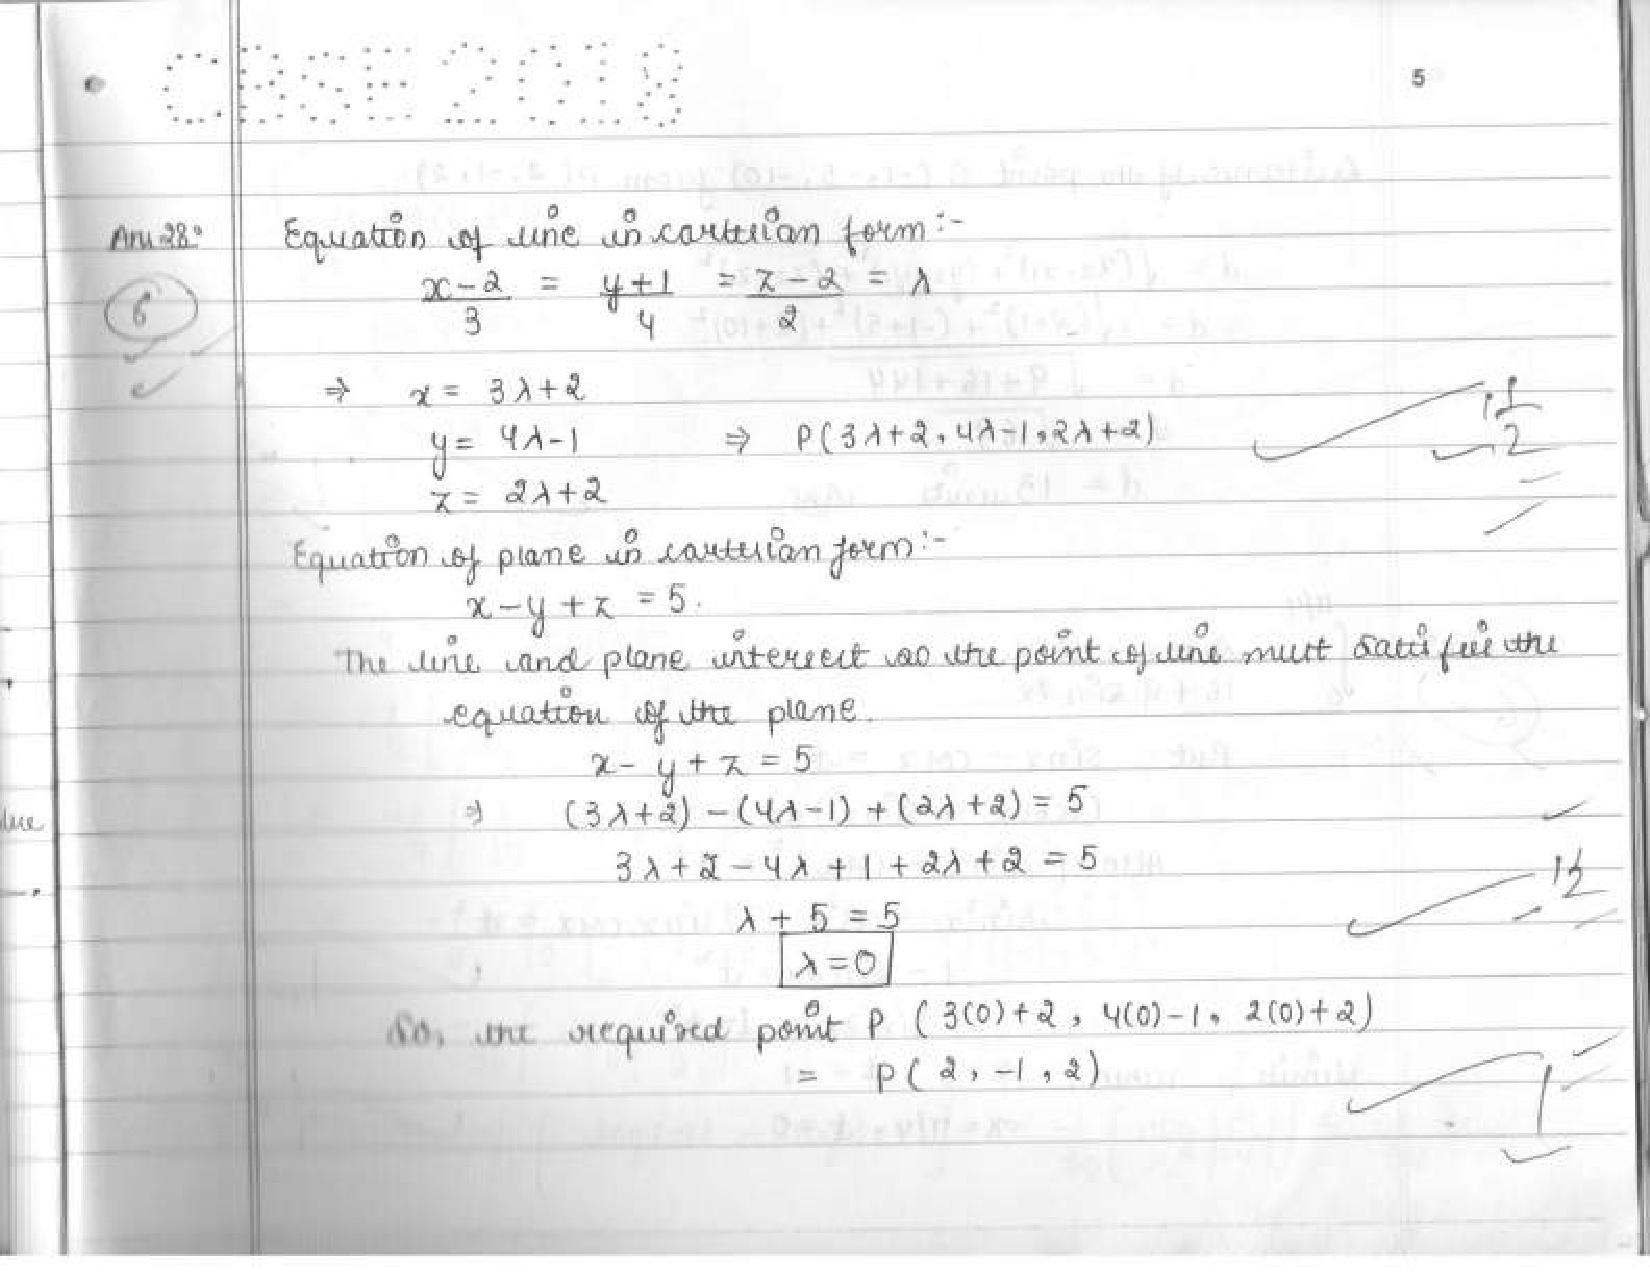 CBSE 2018
5
Ans 28.
Equation of line in cartesian form :-
x-2/3 = y+1/4 = z-2/2 = λ
6
⇒ x = 3λ+2
y = 4λ-1 ⇒ P(3λ+2, 4λ-1, 2λ+2)
1 1/2
z = 2λ+2
Equation of plane in cartesian form :-
x-y+z = 5.
The line and plane intersect so the point of line must satisfies the
equation of the plane.
x-y+z = 5
⇒ (3λ+2) - (4λ-1) + (2λ+2) = 5
3λ+2-4λ+1+2λ+2 = 5
1 1/2
λ+5 = 5
λ=0
So, the required point P (3(0)+2, 4(0)-1, 2(0)+2)
= P(2, -1, 2)
1